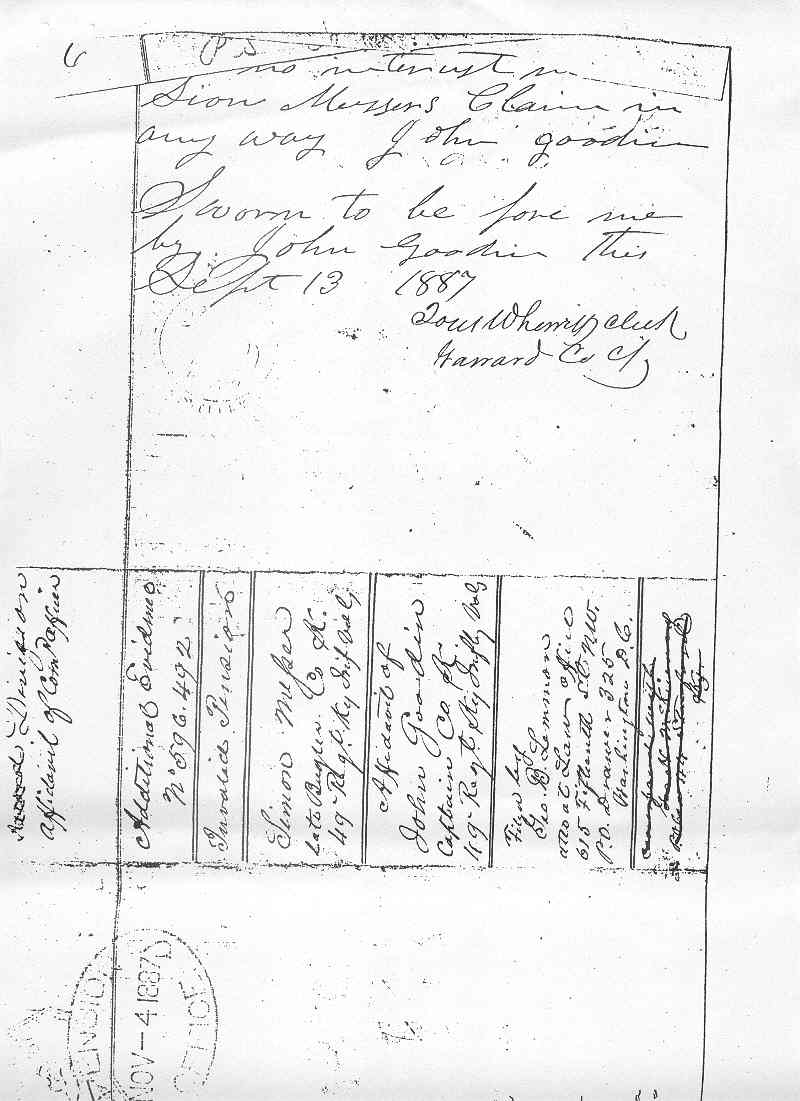 6
P S
no interest in
Sion Messers Claim in
any way John goodin
Sworn to be fore me
by John Goodin this
Sept 13 1887
Wherritt Clerk
Garrard Co Cy
Division
Affidavit of Com. Officer
Additional Evidence
No 596.492
Invalid Pension
Simon Messer
Late Bugler Co K.
49" Regt. Ky Inf Vols
Affidavit of
John Goodin
Captain Co K
49" Regt Ky Inft Vols
Filed by
Geo B Lemmon
atto at Law office
615 Fifteenth St. N.W.
P.O. Drawer 325
Washington D.C.
PENSION
NOV-4 1887
OFFICE